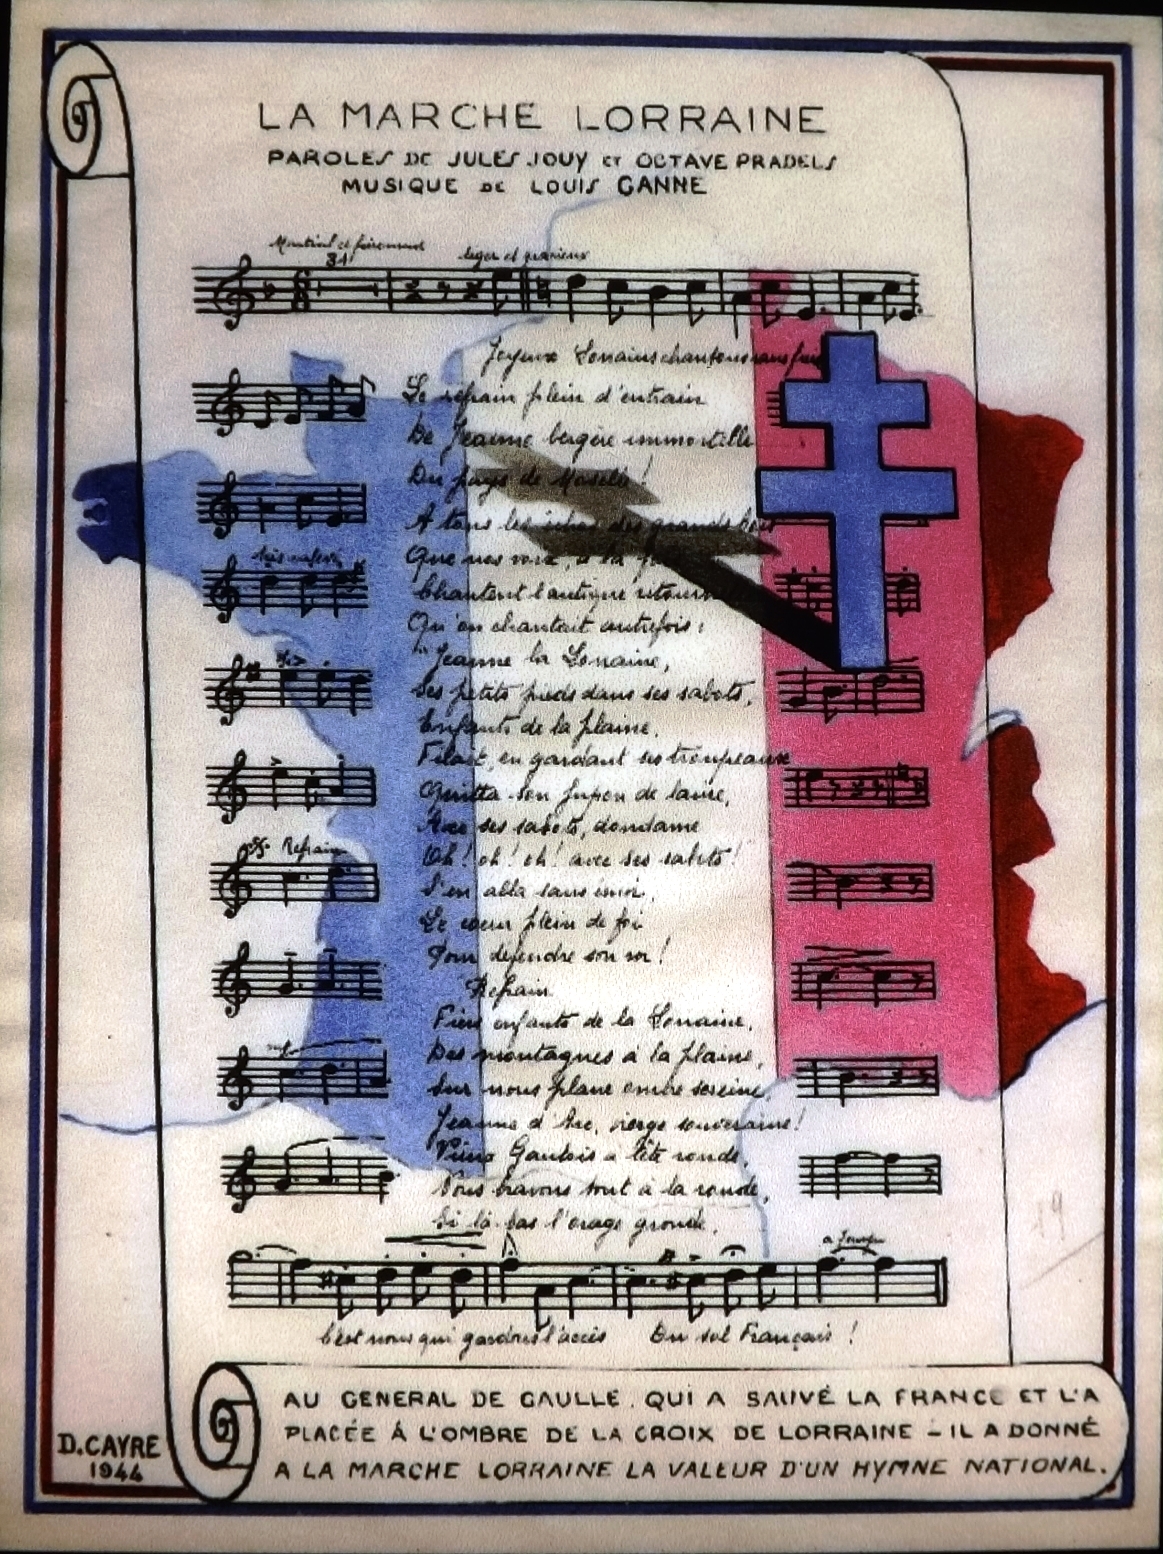 LA MARCHE LORRAINE
PAROLES DE JULES JOUY ET OCTAVE PRADELS
MUSIQUE DE LOUIS GANNE
Martial et fièrement
31
léger et gracieux
Joyeux Lorrains chantons sans
Le refrain plein d'entrain
De Jeanne bergère immortelle
Du pays de Moselle !
A tous les échos des grands bois
Que nos voix, à la
Chantent l'antique
Qu'on chantait autrefois :
"Jeanne la Lorraine,
Ses petits pieds dans ses sabots,
Enfants de la plaine,
Filait, en gardant ses troupeaux
Quitta son jupon de laine,
Avec ses sabots, dondaine
Oh ! oh ! oh ! avec ses sabots !
Refrain
S'en alla sans émoi,
Le cœur plein de foi
Pour défendre son roi !
Refrain
Fiers enfants de la Lorraine,
Des montagnes à la plaine,
Sur nous plane ombre sereine,
Jeanne d'Arc, vierge souveraine !
Vieux Gaulois à tête ronde,
Nous bravons tout à la ronde,
Si là-bas l'orage gronde,
C'est nous qui gardons l'accès Du sol Français !
AU GENERAL DE GAULLE, QUI A SAUVÉ LA FRANCE ET L'A
PLACÉE À L'OMBRE DE LA CROIX DE LORRAINE - IL A DONNÉ
A LA MARCHE LORRAINE LA VALEUR D'UN HYMNE NATIONAL.
D. CAYRE
1944
19